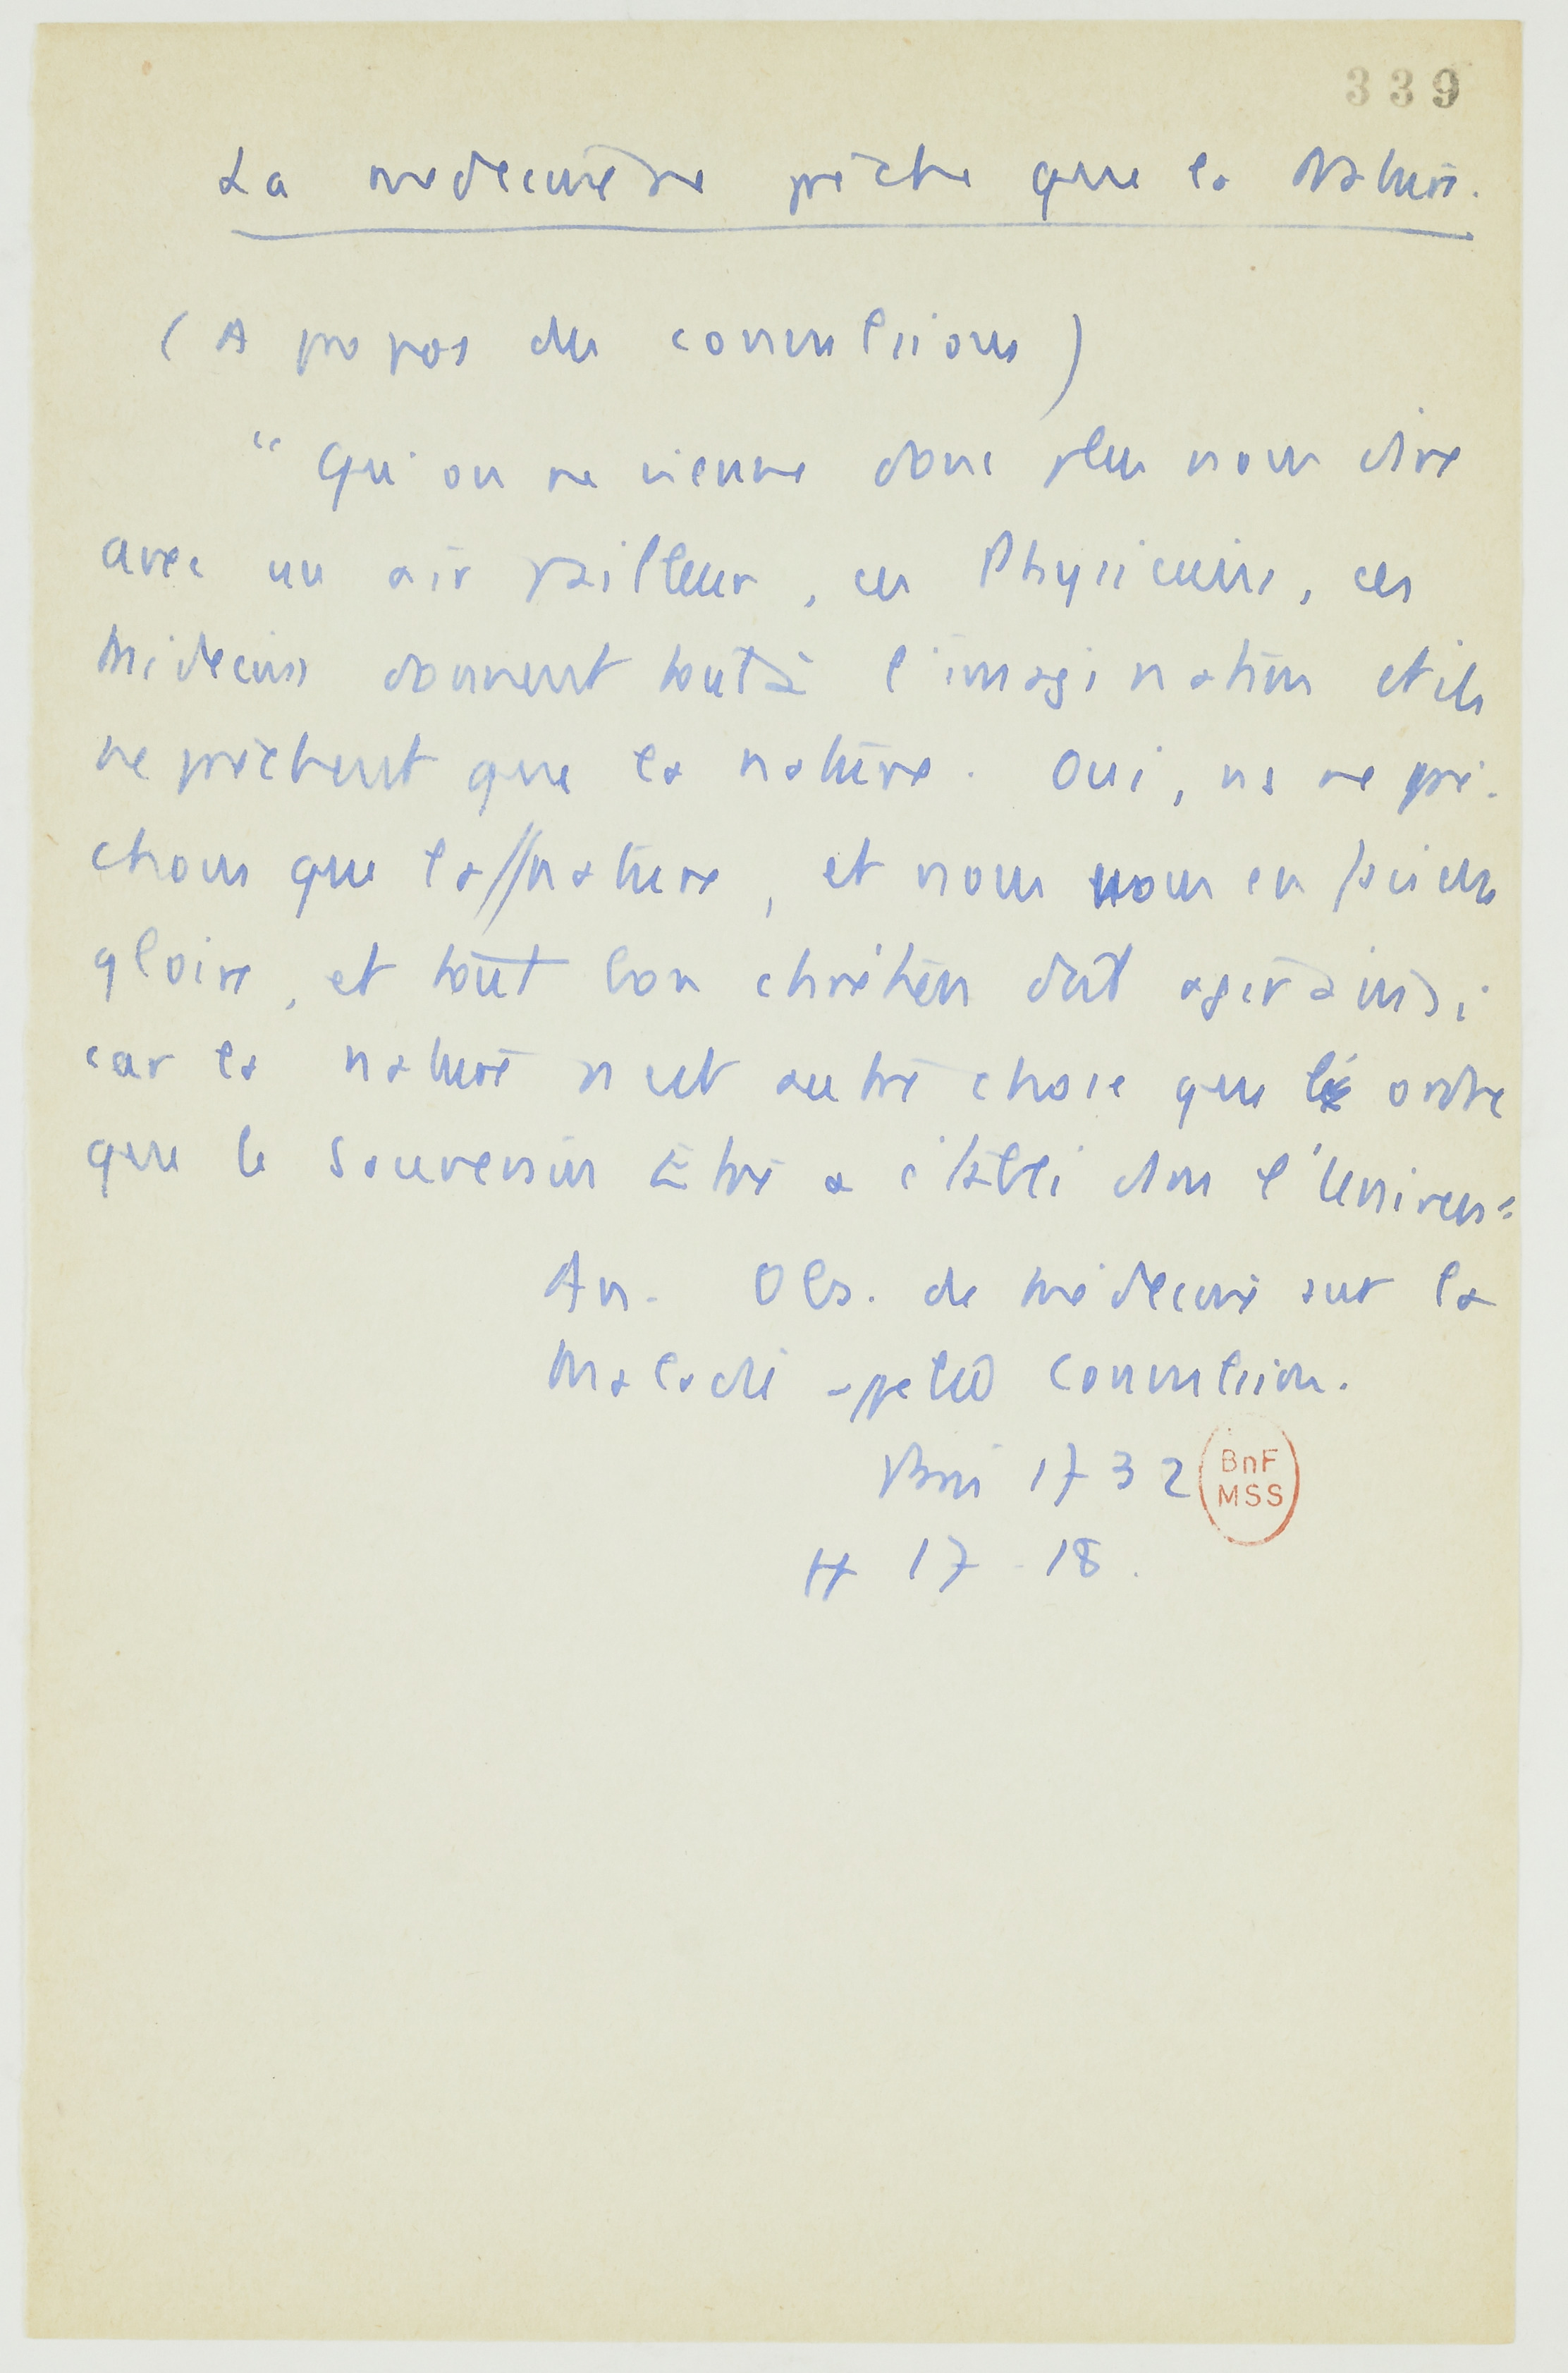 339
La medecine ne prêche que la Nature.
(A propos des convulsions)
"Qu'on ne vienne donc plus nous dire
avec un air railleur, ces Physiciens, ces
Médecins donnent tout à l'imagination et ils
ne prêchent que la nature. Oui, ns ne prê-
chons que la//nature, et nous nous en faisons
gloire, et tout bon chrétien doit agir ainsi
car la nature n'est autre chose que l'ordre
que le Souverain Être a établi dans l'Univers"
An. Obs. de médecine sur la
Maladie appelée Convulsion.
Paris 1732
BnF
MSS
17-18.